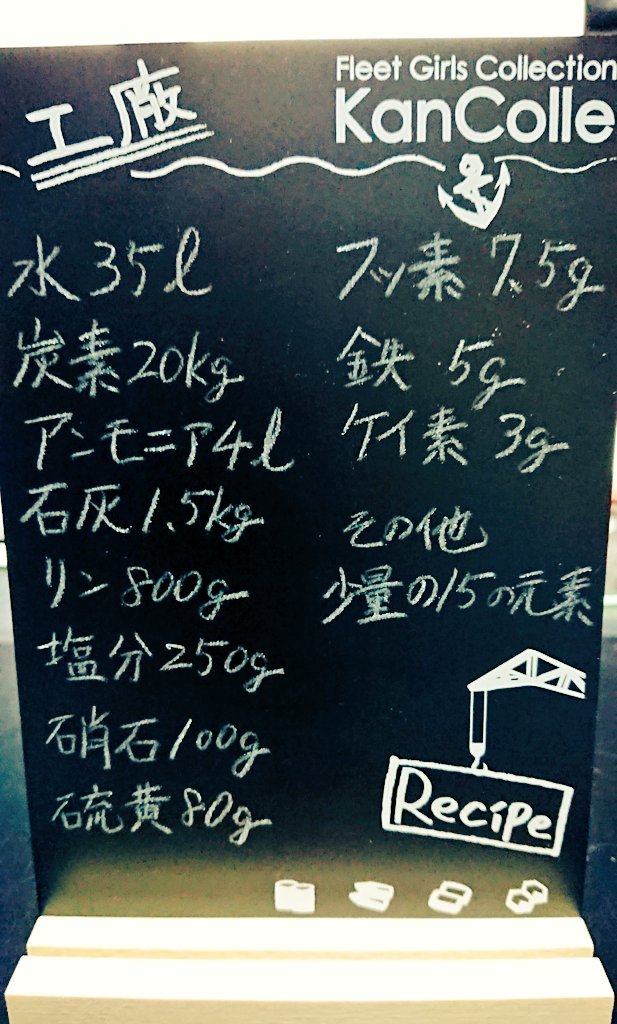 工廠
Fleet Girls Collection
KanColle
水 35l
炭素20kg
アンモニア4l
石灰1.5kg
リン800g
塩分250g
硝石100g
硫黄80g
フッ素 7.5g
鉄 5g
ケイ素 3g
その他
少量の15の元素
Recipe